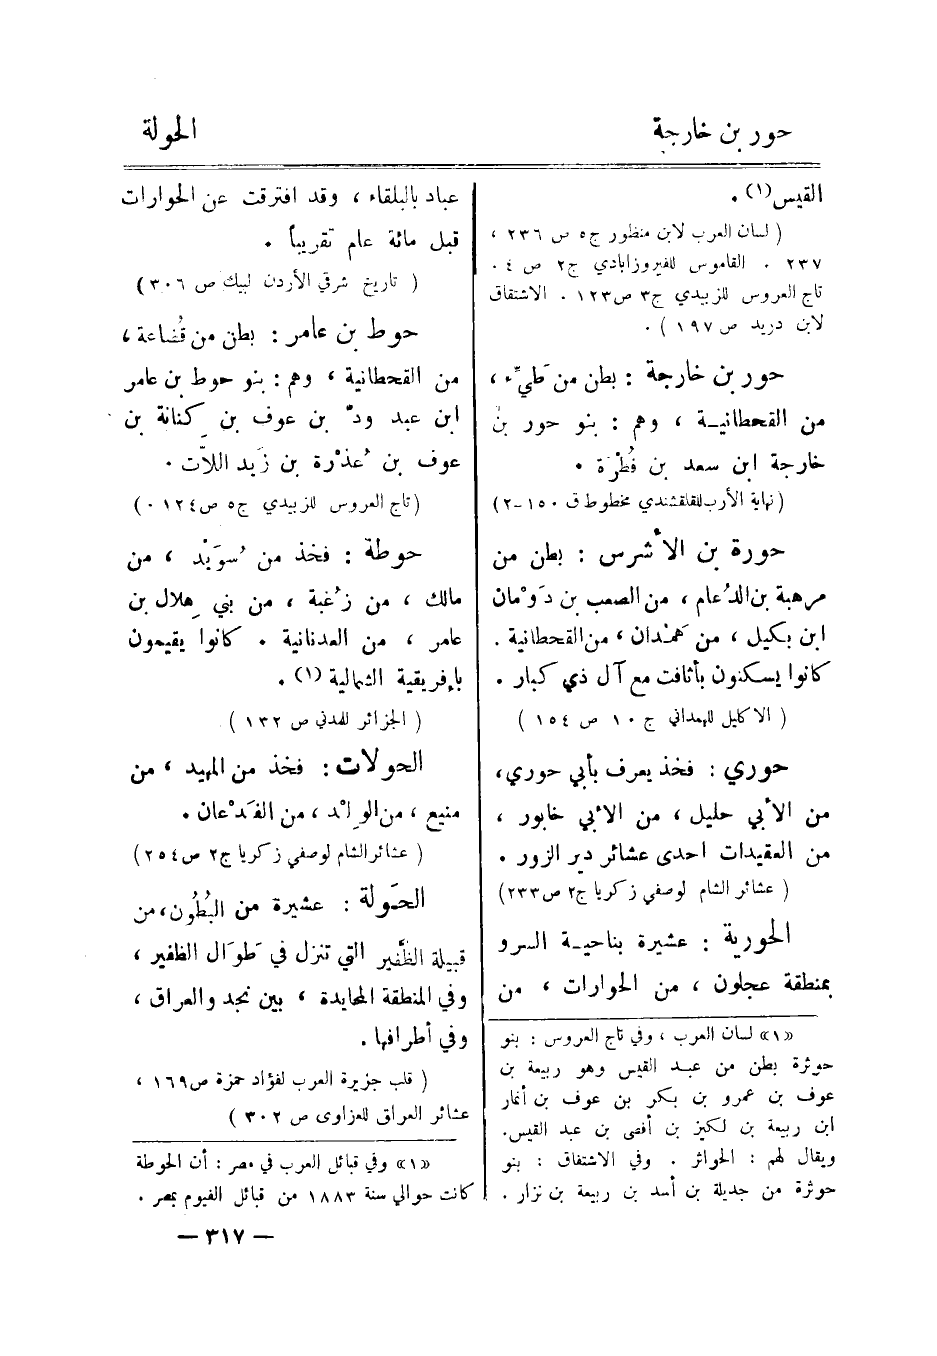 حور بن خارجة
الحولة
القيس(١) .
( لسان العرب لابن منظور ج٥ ص ٢٣٦ ،
٢٣٧ . القاموس للفيروزابادي ج٢ ص ٤ .
تاج العروس للزبيدي ج٣ ص١٢٣ . الاشتقاق
لابن دريد ص١٩٧ ) .
حور بن خارجة : بطن من طيِّء ،
من القحطانيـة ، وهم : بنو حور بن
خارجة ابن سعد بن فُطْرَة .
( نهاية الأرب للقلقشندي مخطوط ق ١٥٠-٢)
حورة بن الأشرس : بطن من
مرهبة بن الدُعام ، من الصعب بن دَوْمان
ابن بكيل ، من هَمْدان ، من القحطانية .
كانوا يسكنون بأثافت مع آل ذي كبار .
( الاكليل للهمداني ج ١٠ ص ١٥٤ )
حوري : فخذ يعرف بأبي حوري،
من الأبي حليل ، من الأبي خابور ،
من العقيدات احدى عشائر دير الزور .
( عشائر الشام لوصفي زكريا ج٢ ص٢٣٣)
الحورية : عشيرة بناحيـة السرو
بمنطقة عجلون ، من الحوارات ، من
«١» لسان العرب ، وفي تاج العروس : بنو
حوثرة بطن من عبد القيس وهو ربيعة بن
عوف بن عمرو بن بكر بن عوف بن أنمار
ابن ربيعة بن لكيز بن أفصى بن عبد القيس.
ويقال لهم : الحواثر . وفي الاشتقاق : بنو
حوثرة من جديلة بن أسد بن ربيعة بن نزار .
عباد بالبلقاء ، وقد افترقت عن الحوارات
قبل مائة عام تقريباً .
( تاريخ شرقي الأردن لبيك ص ٣٠٦)
حوط بن عامر : بطن من قُضاعة ،
من القحطانية ، وهم : بنو حوط بن عامر
ابن عبد ودّ بن عوف بن كِنانة بن
عوف بن عُذْرة بن زَيد اللاَّت .
(تاج العروس للزبيدي ج٥ ص١٢٤ ٠)
حوطة : فخذ من سُوَيْد ، من
مالك ، من زُغبة ، من بني هِلال بن
عامر ، من العدنانية . كانوا يقيمون
بإفريقية الشمالية (١) .
( الجزائر للمدني ص ١٣٢ )
الحولات : فخذ من المهيد ، من
منيع ، من الوِلْد ، من الفَدْعان .
( عشائر الشام لوصفي زكريا ج٢ ص٢٥٤)
الحَولة : عشيرة من البُطُون، من
قبيلة الظَّفير التي تنزل في طَوَال الظفير ،
وفي المنطقة المحايدة ، بين نجد والعراق ،
وفي أطرافها .
( قلب جزيرة العرب لفؤاد حمزة ص١٦٩ ،
عشائر العراق للعزاوى ص ٣٠٢ )
«١» وفي قبائل العرب في مصر : أن الحوطة
كانت حوالي سنة ١٨٨٣ من قبائل الفيوم بمصر .
— ٣١٧ —